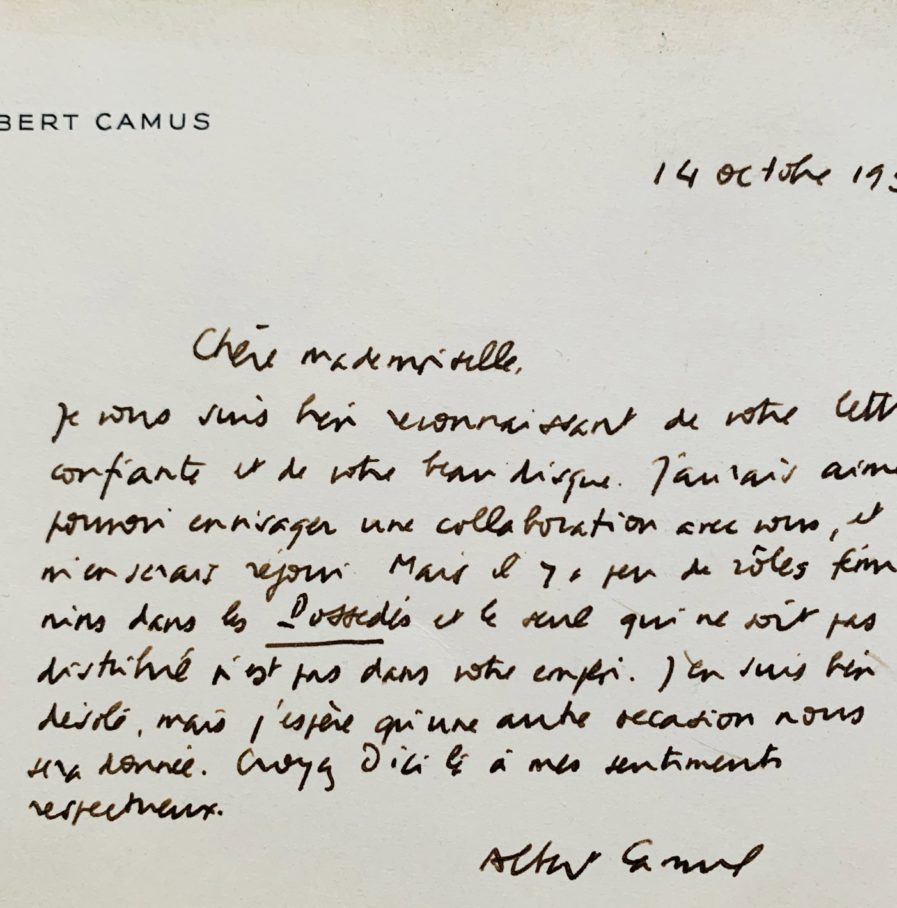 BERT CAMUS
14 octobre 195
Chère mademoiselle,
Je vous suis bien reconnaissant de votre lett
confiante et de votre beau disque. J'aurais aimé
pouvoir envisager une collaboration avec vous, et
m'en serais réjoui. Mais il y a peu de rôles fémi
nins dans les Possédés et le seul qui ne soit pas
distribué n'est pas dans votre emploi. J'en suis bien
désolé, mais j'espère qu'une autre occasion nous
sera donnée. Croyez d'ici là à mes sentiments
respectueux.
Albert Camus